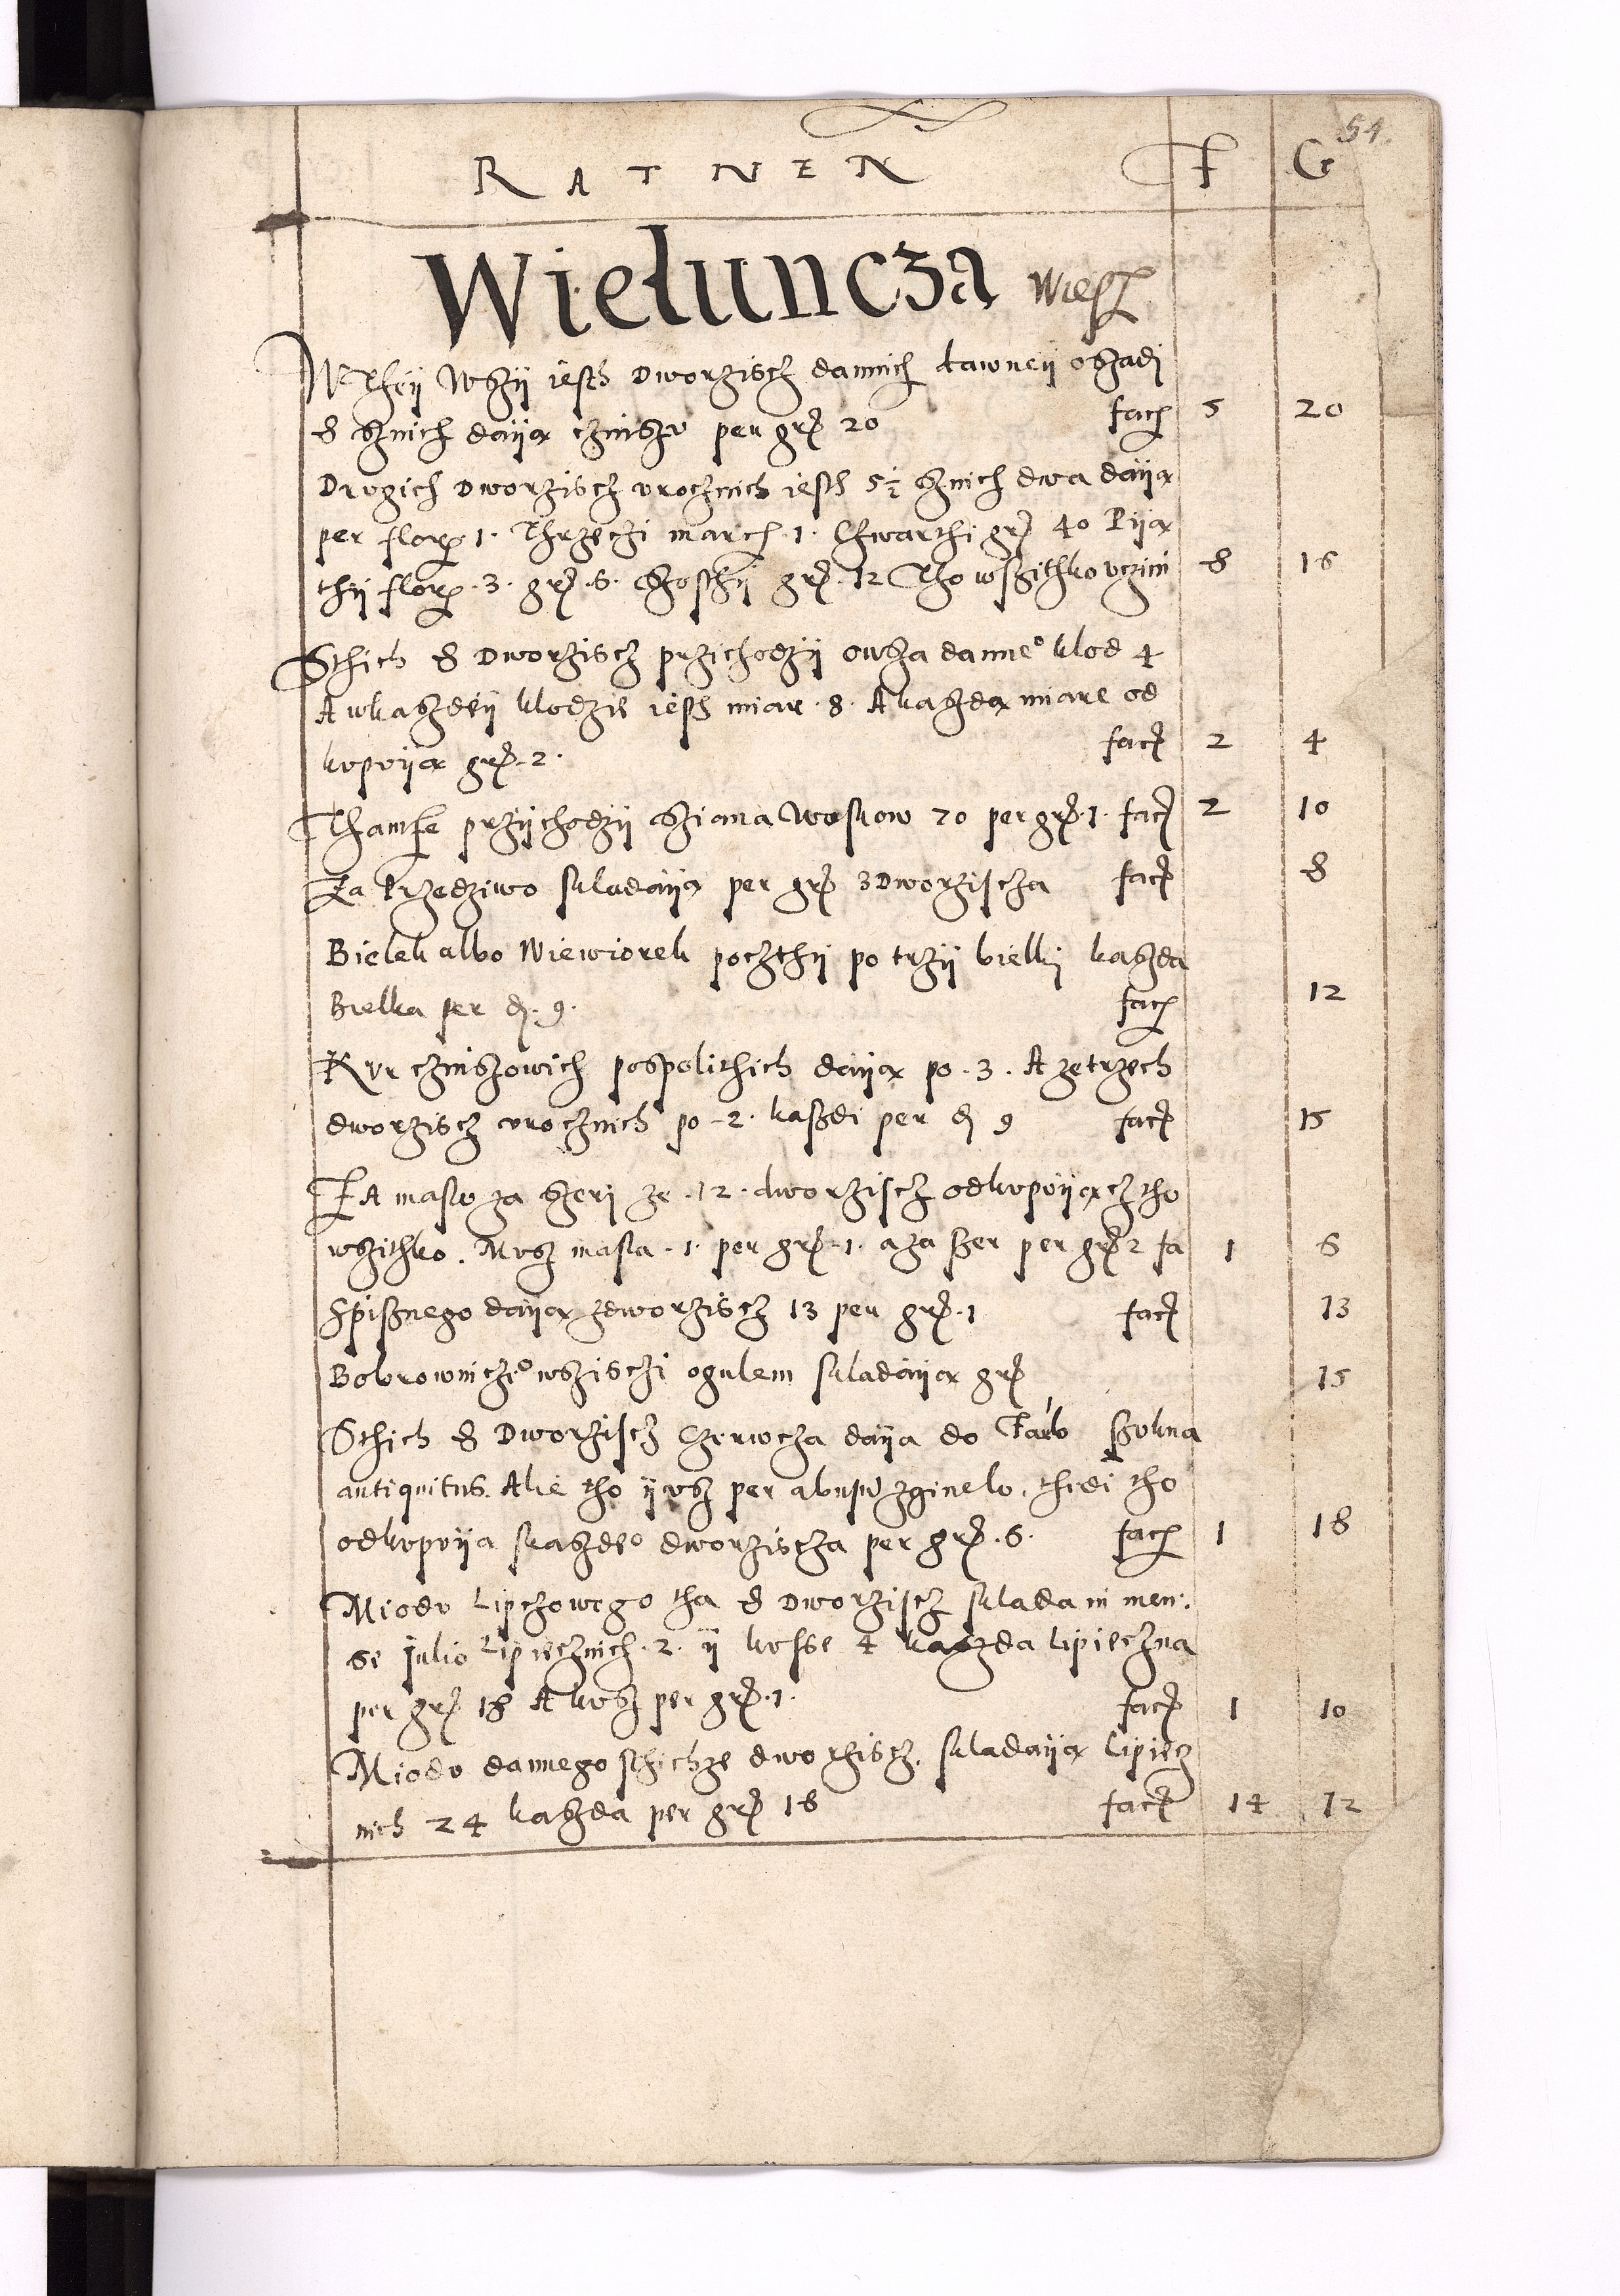 54.
RATNEN F G
Wieluncza wiesz
W Theÿ Wsÿ iesth Dworziscz dannich dawneÿ oszadi
8 Sznich daÿą czinszu per gr 20 facit 5 20
Drugich Dworziscz urocznich iesth 5½ Sznich dwa daÿą
per flor 1. Thrzeczi march. 1. Czwarthi gr 40 Pÿą
thÿ flor. 3. gr. 6. Szosthÿ gr. 12 Tho wszithko uczini 8 16
Sthich 8 Dworziscz przichodzÿ owsza danneo klod 4
A wkaszdeÿ klodzie iesth miar. 8. A kaszdą miare od
kupuÿą gr. 2. facit 2 4
Thamse przÿchodzÿ Sziana Woskow 70 per gr. 1. facit 2 10
Za Przedziwo skladaÿą per gr 3 Dworziscza facit 8
Bielek albo Wiewiorek poczthÿ po trzÿ bielki kaszda
Bielka per d. 9. facit 12
Kur czinszowich pospolithich daÿą po. 3. A ze trzech
dworziscz urocznich po. 2. kaszdi per d 9 facit 15
ZA maslo za Szeri ze. 12. dworziscz odkupuÿą cz tho
wszithko. Musz masla. 1. per gr. 1. a za szer per gr 2 fa 1 6
Spisznego daÿą zdworziscz 13 per gr. 1 facit 13
Bobrowniczeo wszisczi ogulem skladaÿą gr 15
Sthich 8 Dworziscz Czerwcza daÿa do Farb Szokna
antiquitus. Alie tho ÿusz per abusu zginelo. thedi tho
odkupuÿa skaszdeo dworziscza per gr. 6. facit 1 18
Miodu Lipczowego tha 8 Dworziscz sklada in men:
se julio Lipiecznich. 2. ÿ kusse 4 kaszda lipieczna
per gr 18 A kusz per gr. 1. facit 1 10
Miodu dannego sthichze dworziscz. skladaÿą lipiecz
nich 24 kaszda per gr 18 facit 14 12